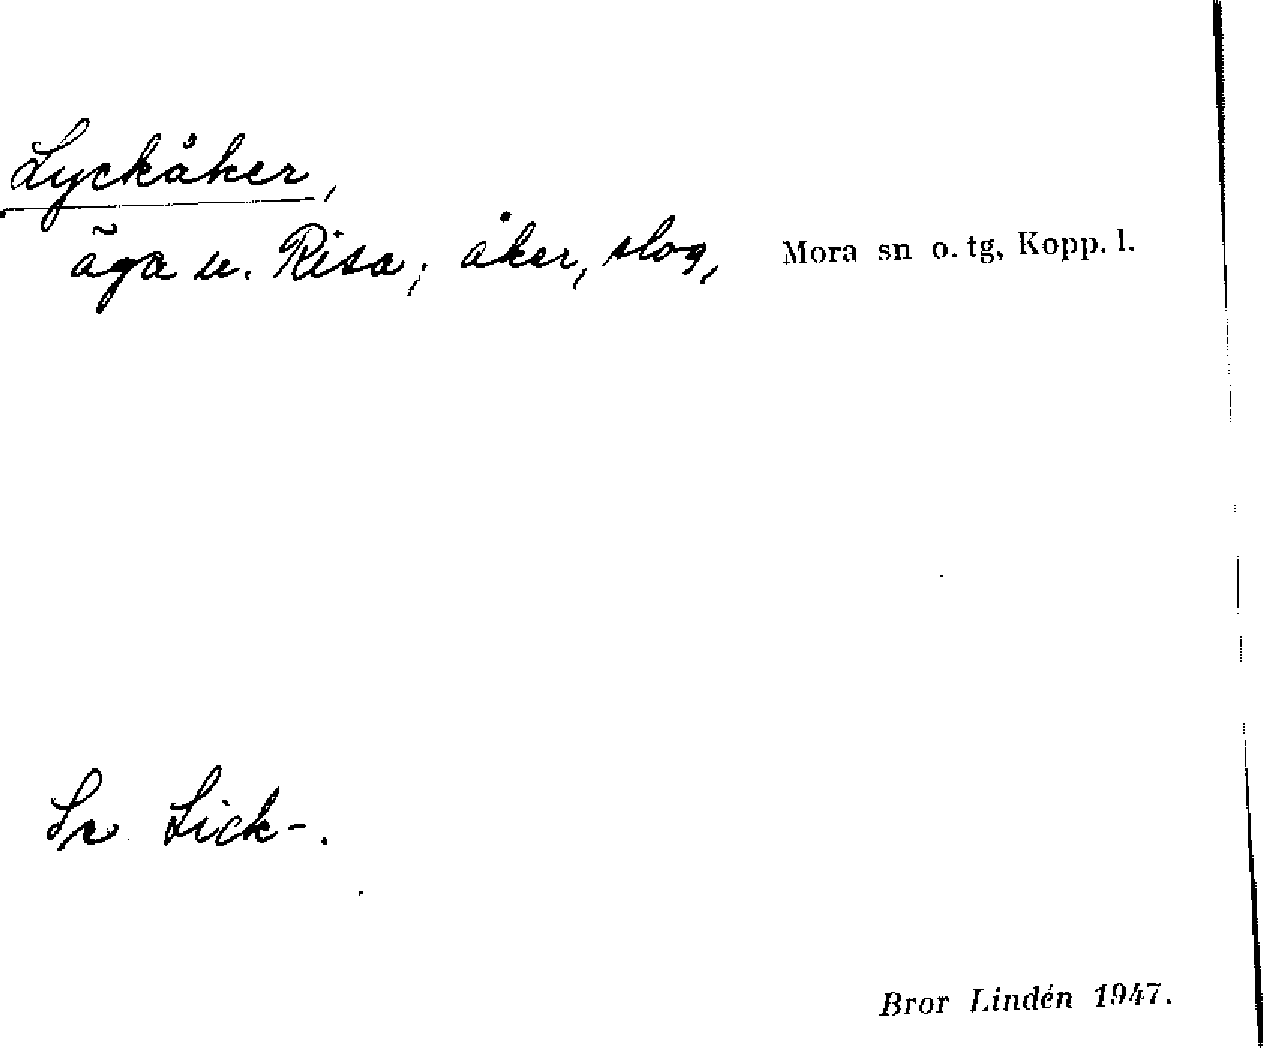 Lyckåker,
äga u. Risa; åker, slog, Mora sn o. tg, Kopp. l.
Se Lick-.
Bror Lindén 1947.